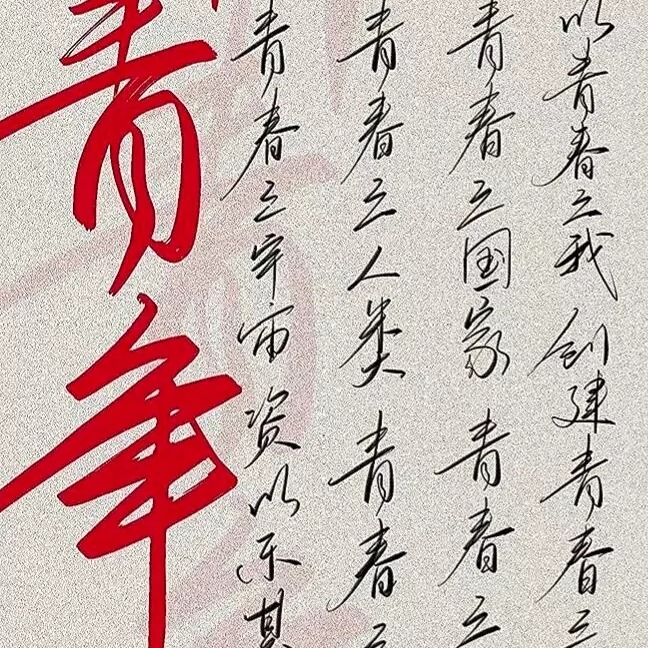 以青春之我 创建青春之
青春之国家 青春之
青春之人类 青春之
青春之宇宙 资以乐其
青年